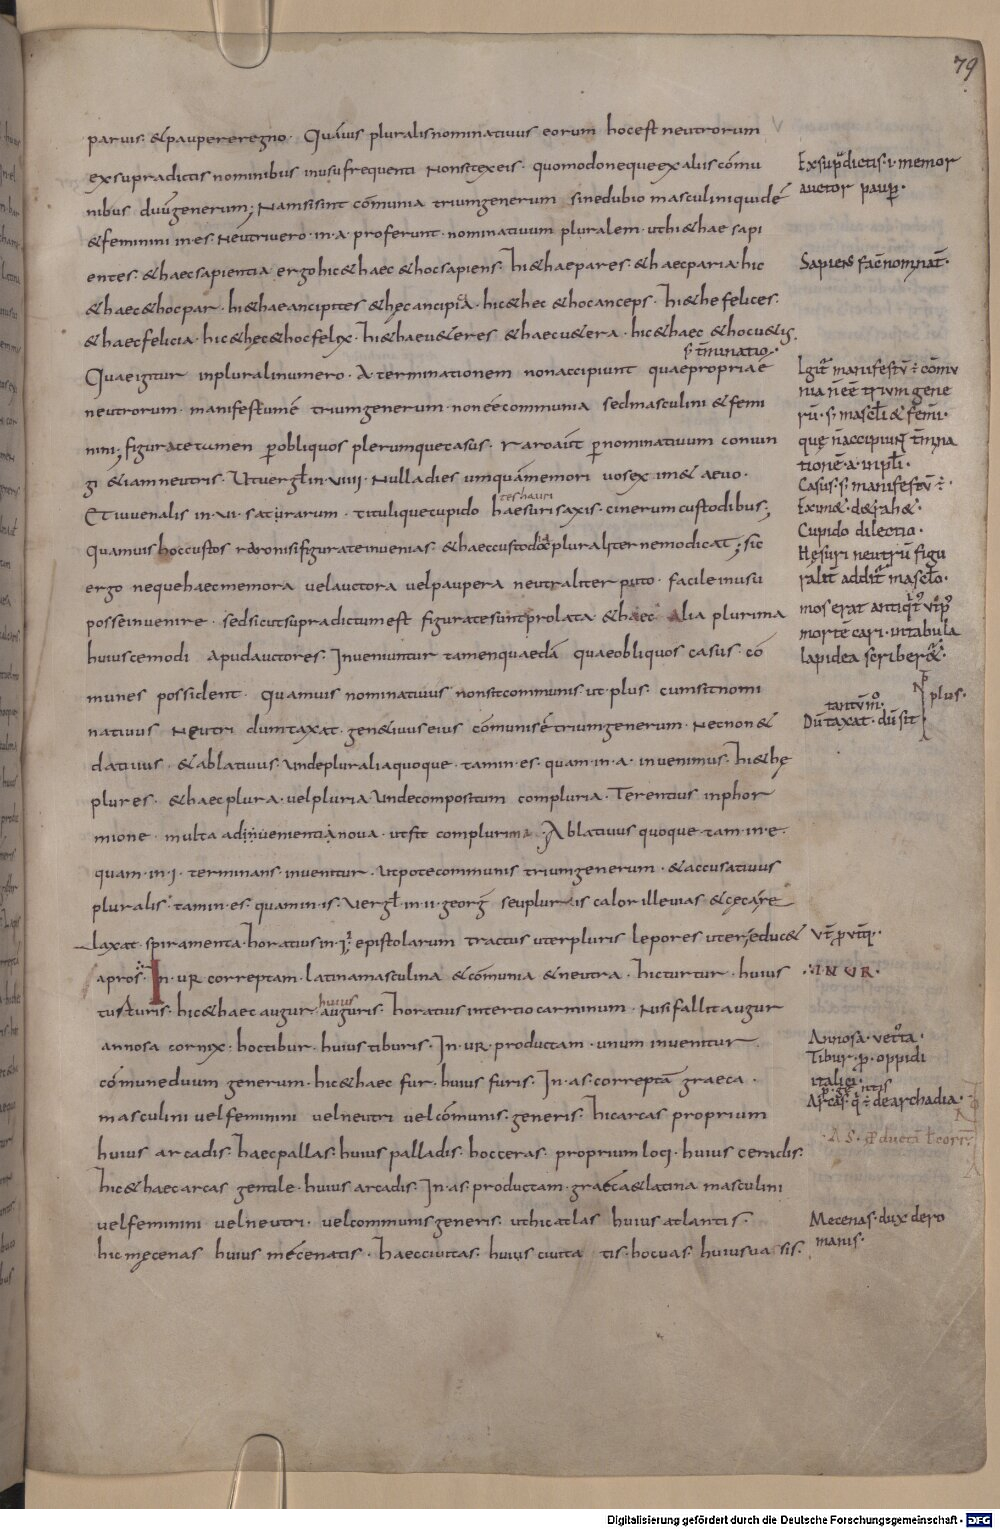 79
paruis· & paupere regno· Quāuis pluralis nominatiuus eorum hoc est neutrorum
ex supradictis nominibus in usu frequenti non sit exeis· quomodo neque ex aliis cōmu
nibus duū generum; Nam si sint cōmunia trium generum sine dubio masculini quidē
& feminini in ·es· Neutri uero ·in ·a· proferunt· nominatiuum pluralem· ut hi & hae sapi
entes· & haec sapientia ergo hic & haec & hoc sapiens· hi & hae pares· & haec paria· hic
& haec & hoc par· hi & hae ancipites & hęc ancipia· hic & hec & hoc anceps· hi & he felices·
& haec felicia· hic & hęc & hoc felix· hi & hae u&eres & haec u&era· hic & haec & hoc u&us·
s· t̄minatio·
Quae igitur in plurali numero· A terminationem non accipiunt quae propria ē
neutrorum· manifestum ē trium generum non eē communia sed masculini & femi
nini; figurate tamen p obliquos plerumque casus· raro aūt p nominatiuum coniun
gi & iam neutris· Ut uergł in ·viiii· Nulla dies umquā memori uos eximet aeuo·
teshauri
Et iuuenalis in ·xvi· saturarum· titulique cupido haesuri saxis· cinerum custodibus;
Quamuis hoc custos raro nisi figurate inuenias· & haec custodia pluraliter nemo dicat; sic
ergo neque haec memora uel auctora uel paupera neutraliter puto· facile in usu
posse inuenire· sed sicut supra dictum est figurate sunt prolata & haec· Alia plurima
huiuscemodi apud auctores· Inueniuntur tamen quaedā quae obliquos casus cō
munes possident· quamuis nominatiuus non sit communis ut plus· cum sit nomi
natiuus neutri dumtaxat· gen&iuus eius cōmunis ē trium generum· Necnon &
datiuus & ablatiuus· Unde pluralia quoque· tam in ·es· quam in ·a· inuenimus· hi & hę
plures· & haec plura· uel pluria unde compositum compluria· Terentius in phor
mione· multa aduenientia noua· ut fit complurima· Ablatiuus quoque tam ·in ·e·
quam ·in ·i· terminans· inuenitur· Utpote communis trium generum· & accusatiuus
pluralis· tam in ·es· quam in ·is· Uergł in ·ii· georg̃ seu pluris calor ille uias & cęca re
laxat· spiramenta· horatius in ·i· epistolarum tractus uter pluris lepores uter educ&
apros· In ·ur correptam· latina masculina & cōmunia & neutra· hic turtur· huius
huius
turturis· hic & haec augur auguris· horatius in tertio carminum· Nisi fallit augur
annosa cornix· hoc tibur· huius tiburis· In ·ur· productam· unum inuenitur
cōmune duum generum· hic & haec fur· huius furis· In ·as· correptā graeca·
masculini uel feminini uel neutri uel cōmunis generis· hic arcas proprium
huius arcadis· haec pallas· huius palladis· hoc ceras· proprium loci· huius ceradis·
hic & haec arcas gentile· huius arcadis· In ·as· productam· graeca & latina masculini
uel feminini uel neutri· uel communis generis· ut hic atlas huius atlantis·
hic mecenas huius mecenatis· haec ciuitas· huius ciuita tis· hoc uas· huius uasis·
Ex supdictis· i· memor
auctor paup·
Sapiens fac̄ nominat̄·
Igit̄ manifestū ē cōmu
nia n̄ eē trium gene
rū· s· mascł & femi·
quę n̄ accipiunt t̄mina
tionē ·a· in pł·
Casus· s· manifestū ē·
Cupido dilectio·
Hęsuri neutrū figu
ralit̄ addit̄ mascło·
mortē cari· in tabula
lapidea scriber&·
plus·
tantūm̊·
Dūtaxat· dū sit
IN UR·
Annosa· vet̊ta·
Tibur· p· oppidi
italici·
Arcas· q̄ ē de archadia·
Mecenas· dux de ro
manis·
Digitalisierung gefördert durch die Deutsche Forschungsgemeinschaft - DFG